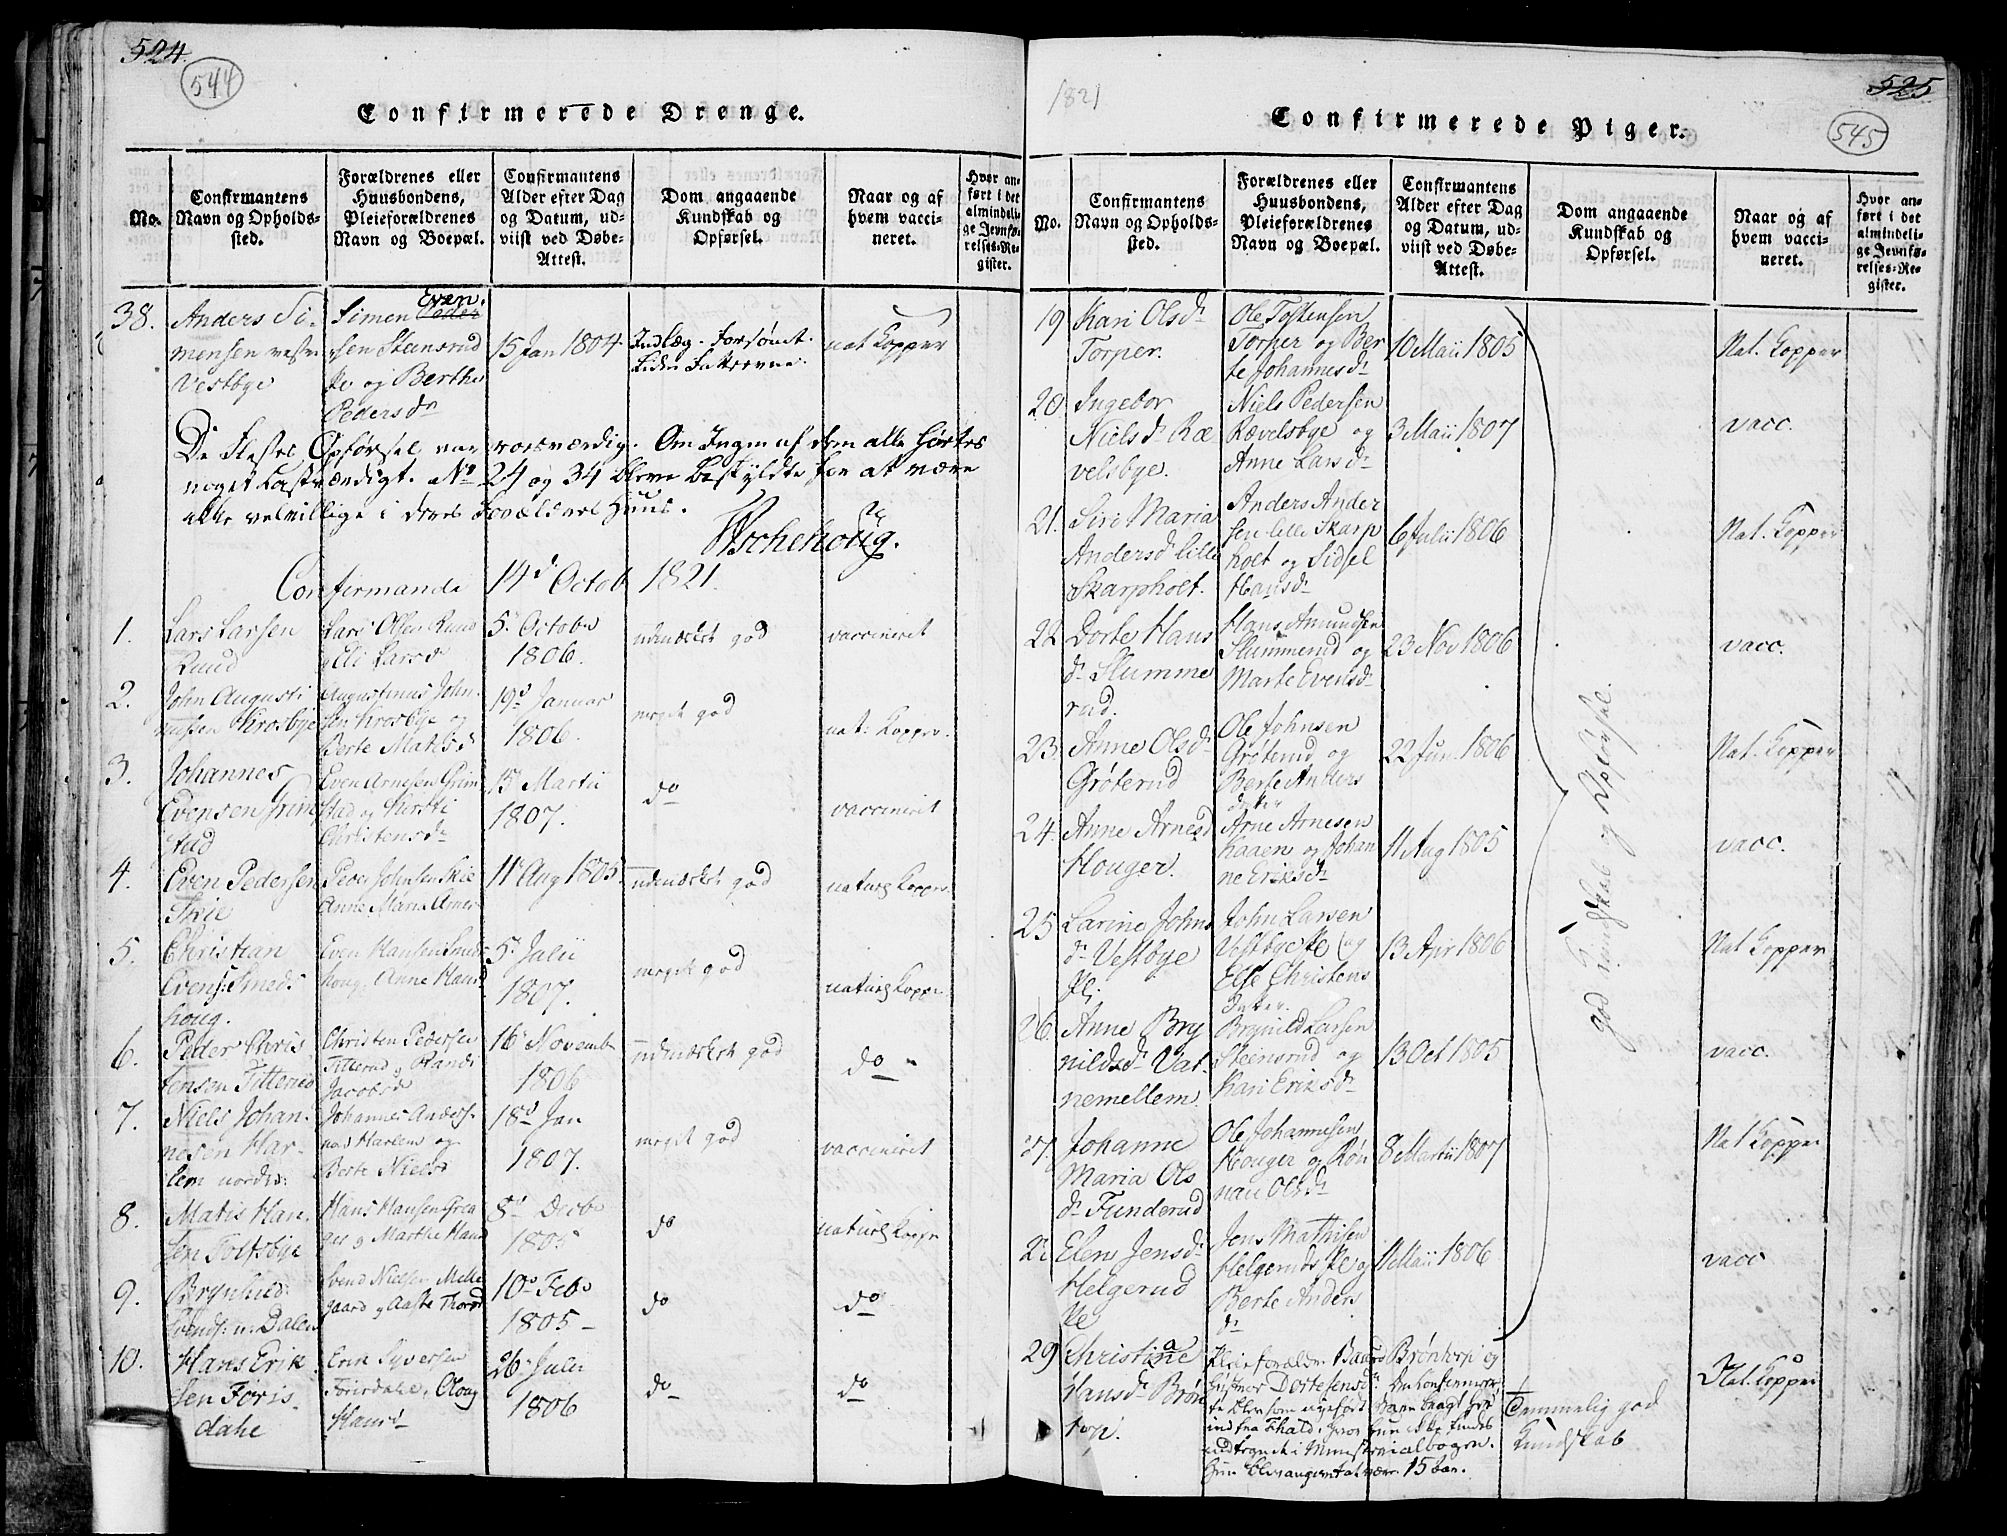 524.
544
Confirmerede Drenge.
No.
Confirmantens
Navn og Opholds-
sted.
Forældrenes eller
Huusbondens,
Pleieforældrenes
Navn og Boepæl.
Confirmantens
Alder efter Dag
og Datum, ud-
viist ved Døbe-
Attest.
Dom angaaende
Kundskab og
Opførsel.
Naar og af
hvem vacci-
neret.
Hvor an-
ført i det
almindeli-
ge Jevnfø-
relses-Re-
gister.
38.
Anders Si-
mensen
Vestbye
Simen Even
sen Stensrud
Pe og Berthe
Pedersdr
15 Jan 1804
Indlæg. Forsømt.
nat Kopper
De flestes Opførsel var roesværdig. Om Ingen af dem alle hørtes
noget Lastværdigt. No 24 og 34 bleve beskyldte for at være
ikke velvillige i deres Forældres Huus.
Aschehoug.
Confirmande 14d Octob 1821.
1.
Lars Larsen
Ruud
Lars Olsen Ruud
og Eli Larsd
5. Octobr
1806.
udmærket god
vaccineret
2.
John Augusti
nussen Krosbye
Augustinus John-
sen Krosbye og
Berte Matisd
19d Januar
1806.
meget god
nat: Kopper.
3.
Johannes
Evensen Grim
stad
Even Arnesen Grim
stad og Kirsti
Christensdr
15 Martii
1807.
do
vaccineret
4.
Even Pedersen
Skie
Peder Johnsen Skie
Anne Maria
11 Aug 1805.
udmærket god
naturl Kopper
5.
Christian
Evens: Smeds
houg.
Even Hansen Smeds
houg, Anne Hansd
5 Julii
1807.
meget god
naturl Kopper
6.
Peder Chris
tensen Titterud
Christen Pedersen
Titterud og Randi
Jacobsd
16 Novemb
1806
udmærket god
do
7.
Niels Johan-
nesen Har-
lem nordre:
Johannes Anders-
Harlem og
Berte Nielsd
18d Jan
1807.
meget god
vaccineret
8.
Matis Han-
sen Toltsbye
Hans Hansen
og Marthe Hansd
8d Decbr
1805
do
naturl Kopper
9.
Brynhild
Svends: n: Dalen
Svend Nielsen Melle
gaard og Aaste Thorsd
10d Febr
1805
do
do
10.
Hans Erik
sen Foris-
dahe
Erik Syversen
Forisdahe, Oloug
Hansd
26 Julii
1806
do
do
1821
525
545
Confirmerede Piger.
No.
Confirmantens
Navn og Opholds-
sted.
Forældrenes eller
Huusbondens,
Pleieforældrenes
Navn og Boepæl.
Confirmantens
Alder efter Dag
og Datum, ud-
viist ved Døbe-
Attest.
Dom angaaende
Kundskab og
Opførsel.
Naar og af
hvem vacci-
neret.
Hvor an-
ført i det
almindeli-
ge Jevnfø-
relses-Re-
gister.
19
Kari Olsdr
Torper.
Ole Tostensen
Torper og Ber
te Johannesdr
10 Maii 1805
Nat. Kopper
20.
Ingebor
Nielsdr Ræ
velsbye.
Niels Pedersen
Rævelsbye og
Anne Larsdr
3 Maii 1807
vacc.
21.
Siri Maria
Andersdr lille
Skarpholt.
Anders Ander
sen lille Skarp
holt og Sidsel
Hansdr
6 Julii 1806
Nat. Kopper
22
Dorte Hans
dr Slumme
rud.
Hans Amundsen
Slummerud og
Marte Evensdr
23 Nov 1806
vacc.
23.
Anne Olsdr
Grøterud
Ole Johnsen
Grøterud og
Berte Anders
datter
22 Jun 1806
Nat. Kopper
24.
Anne Arnesd
Houger.
Arne Arnesen
Kaaen og Johan
ne Eriksdr
11 Aug 1805
vacc.
25
Larine Johns
dr Vestbye
Pl;
John Larsen
Vestbye Pe og
Else Christens
datter.
13 Apr 1806
Nat Kopper
26.
Anne Bry
nildsdr Vat-
nemellem.
Brynild Larsen
Steinsrud og
Kari Eriksdr
13 Oct 1805
vacc.
27.
Johanne
Maria Ols
dr Funderud
Ole Johannesen
Houger og Røn
nau Olsdr
8 Martii 1807
Nat Kopper
Elen Jensdr
Helgerud
Pe
Jens Mathisen
Helgeruds Pe og
Berte Anders
dr
11 Maii 1806
vacc
god Kundskab og Opførsel.
29
Christine
Hansdr Brøn
torp.
Pleieforældre Brøntorp og
indfra Fhald, hvor hun ikke findes
indtegnet i Ministerialbogen.
Hun blev angivet at være 15 Aar.
Temmelig god
Kundskab
Nat. Kopper